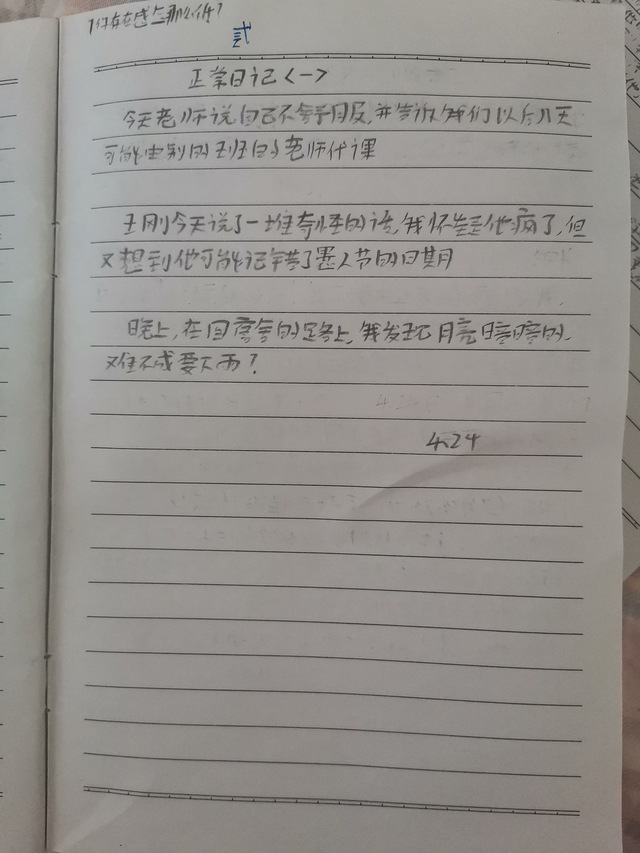 贰
正常日记<一>
今天老师说自己不舒服,并告诉我们以后几天
可能由别的班的老师代课
王刚今天说了一堆奇怪的话,我怀疑是他疯了,但
又想到他可能记错了愚人节的日期
晚上,在回宿舍的路上,我发现月亮暗暗的,
难不成要下雨?
4.24